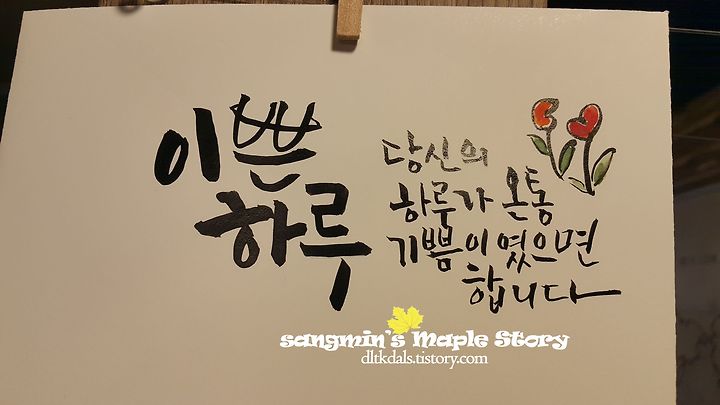 이쁜
하루
당신의
하루가 온통
기쁨이였으면
합니다
sangmin's Maple Story
dltkdals.tistory.com